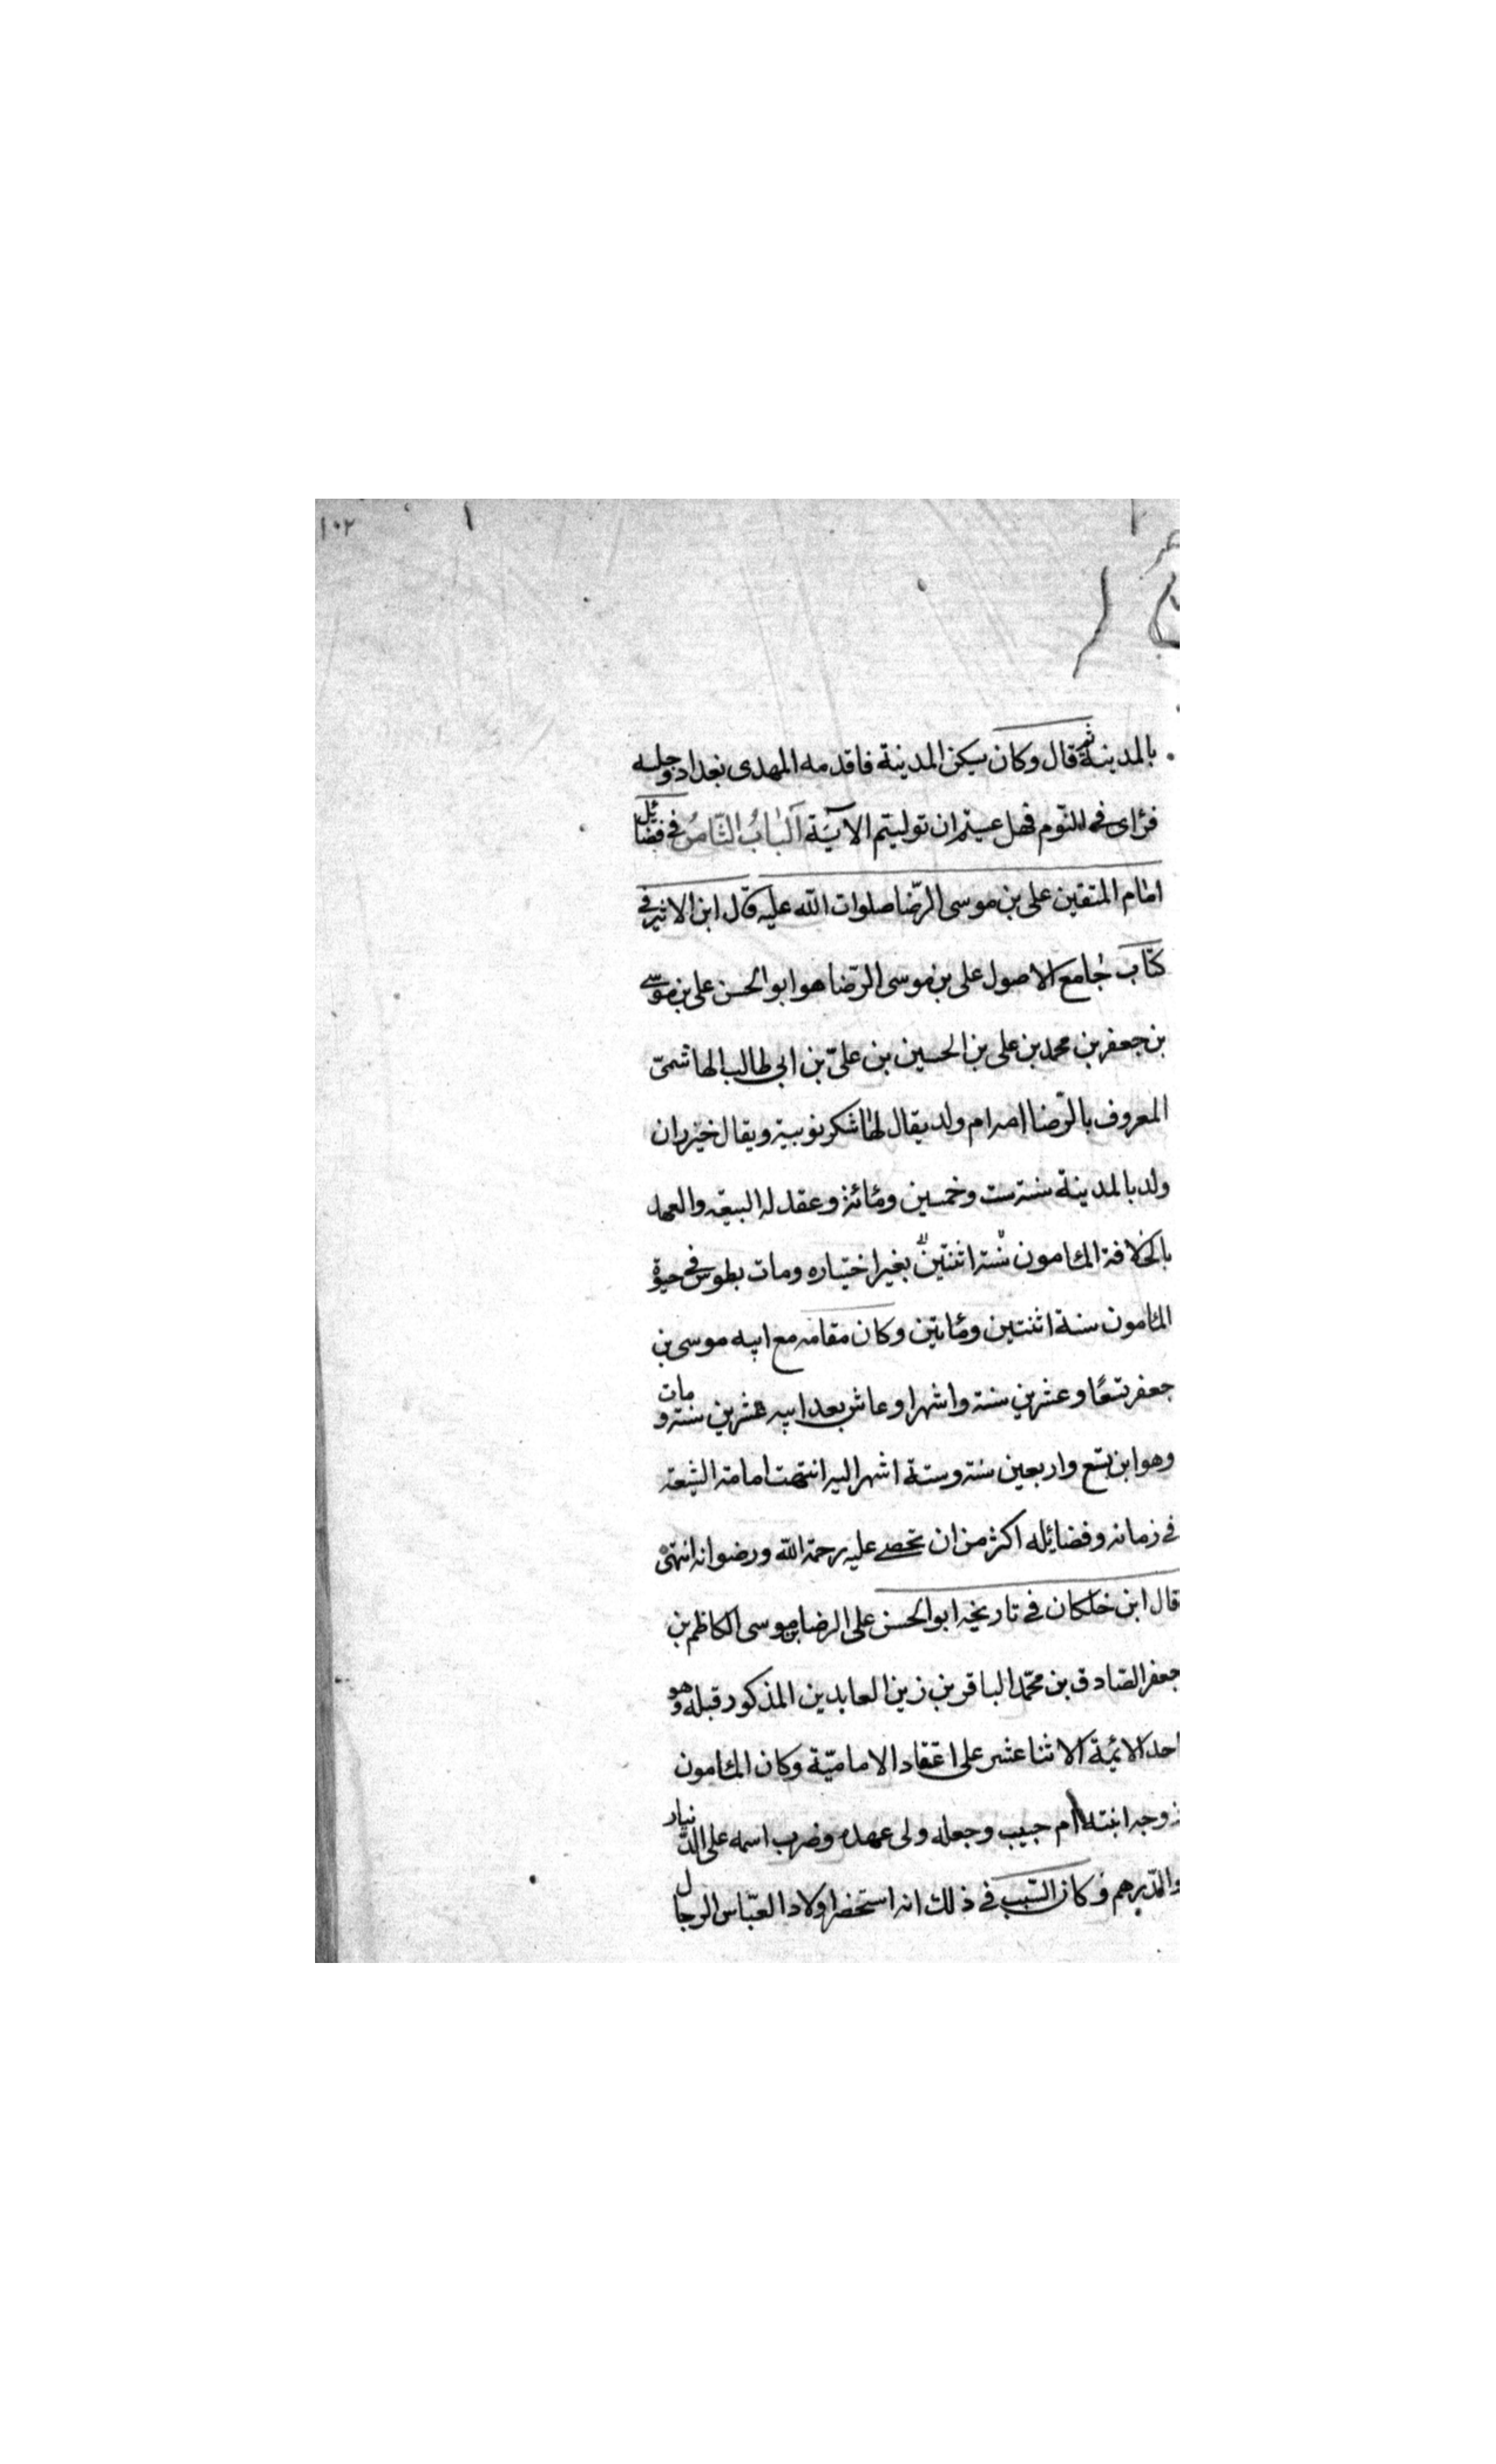 ١٠٢
بالمدينة ثم قال وكان يسكن المدينة فاقدمه المهدى بغداد وحبسه
فرأى فى النوم فهل عسيتم ان توليتم الآية الباب الثامن فى فضائل
امام المتقين على بن موسى الرضا صلوات الله عليه قال ابن الاثير فى
كتاب جامع الاصول على بن موسى الرضا هو ابو الحسن على بن موسى
بن جعفر بن محمد بن على بن الحسين بن علىّ بن ابى طالب الهاشمىّ
المعروف بالرّضا امه ام ولد يقال لها شكر نوبية ويقال خيزران
ولد بالمدينة سنة ست وخمسين ومائة وعقد له البيعة والعهد
بالخلافة المأمون سنة اثنتين بغير اختياره ومات بطوس فى حيوة
المأمون سنة اثنتين ومأتين وكان مقامه مع ابيه موسى بن
جعفر تسعًا وعشرين سنة واشهرا وعاش بعد ابيه عشرين سنة ومات
وهو ابن تسع واربعين سنة وستة اشهر اليه انتهت امامة الشيعة
فى زمانه وفضايله اكثر من ان تحصى عليه رحمة الله ورضوانه انتهى
قال ابن خلكان فى تاريخه ابو الحسن على الرضا بن موسى الكاظم بن
جعفر الصّادق بن محمّد الباقر بن زين العابدين المذكور قبله وهو
احد الائمة الاثنا عشر على اعتقاد الاماميّة وكان المأمون
زوجه ابنته ام حبيب وجعله ولى عهده وضرب اسمه على الدّينار
والدّرهم وكان السّبب فى ذلك انه استحضر اولاد العبّاس الرجال